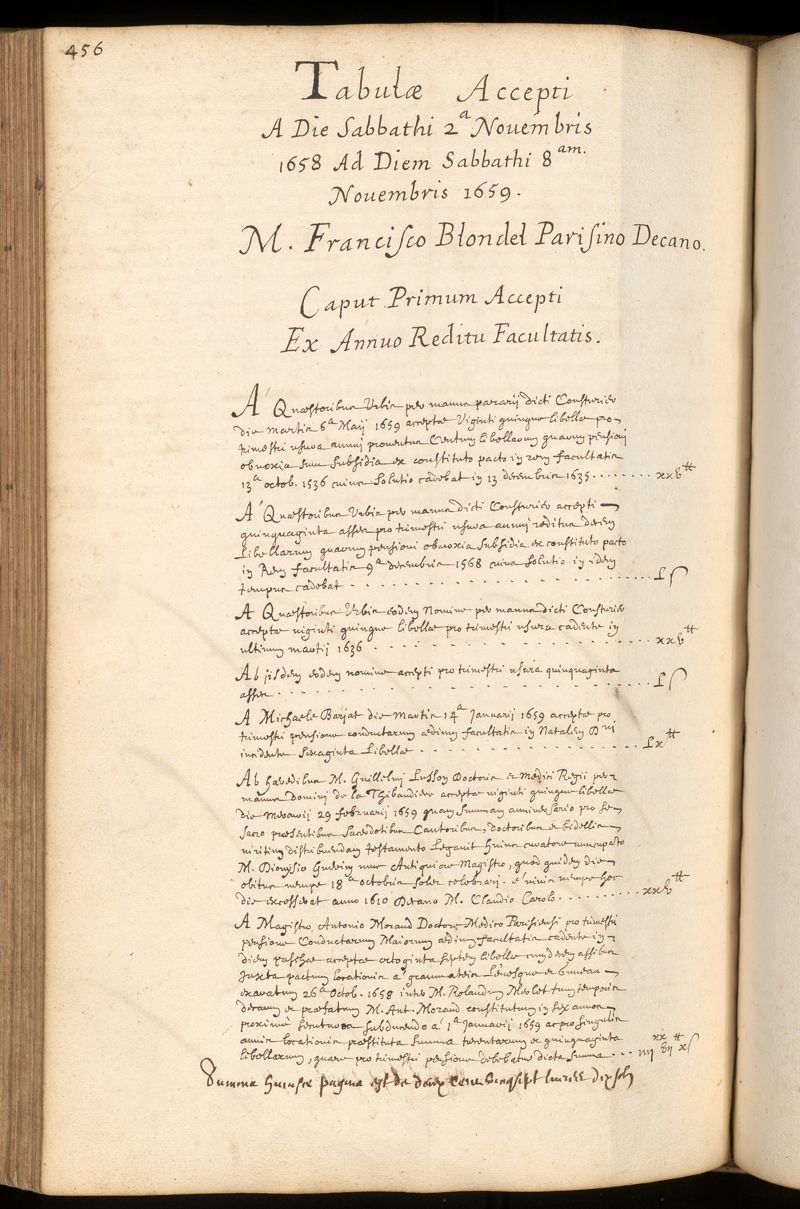 456
Tabulæ Accepti
A Die Sabbathi 2ª Nouembris
1658 Ad Diem Sabbathi 8am.
Nouembris 1659.
M. Francisco Blondel Parisino Decano.
Caput Primum Accepti
Ex Annuo Reditu Facultatis.
A Quæstoribus Urbis per manus pararij dicti Consturier
die martis 6ª Maij 1659 acceptæ Viginti quinque libellæ pro
trimestri usura annui prouentus Centum libellarum quarum pensioni
obnoxia sunt subsidia ex constituto pacto in rem facultatis
13ª octob. 1536 cuius solutio cadebat in 13 decembris 1635 xxv₶
A Quæstoribus Urbis per manus dicti Consturier accepti
quinquaginta asses pro trimestri usura annui reditus decem
Libellarum quarum pensioni obnoxia subsidia ex constituto pacto
in Rem facultatis 9ª decembris 1568 cuius solutio in idem
tempus cadebat L s
A Quæstoribus Urbis eodem Nomine per manus dicti Consturier
acceptæ viginti quinque libellæ pro trimestri usura cadente in
ultimum martij 1636 xxv₶
Ab iisdem eodem nomine accepti pro trimestri usura quinquaginta
asses L s
A Michaele Barjat die martis 14ª Januarij 1659 acceptæ pro
trimestri pensione conductarum ædium facultatis in Natalem Dni
incidente sexaginta Libellæ Lx₶
Ab hæredibus M. Guillelmi Lusson Doctoris et Medici Regii per
manus Domini de la Thibaudiere acceptæ viginti quinque libellæ
die 29 februarij 1659 quam summam anniuersario pro se
sacro præsentibus Sacerdotibus Cantoribus, doctoribus et bidellis
viritim distribuendam testamento Legauit huius curatore nuncupato
M. Dionysio Guerin nunc Antiquiore Magistro, quod quidem die
obitus nempe 18ª octobris solet celebrari. è viuis nempe hoc
die excesserat anno 1610 Decano M. Claudio Carolo xxv₶
A Magistro Antonio Morand Doctore Medico Parisiensi pro trimestri
pensione Conductarum Maiorum ædium facultatis cadente in
diem paschæ acceptæ octoginta septem libellæ cum decem assibus
Juxta pactum locationis a grammateis Leuesque et
exaratum 26ª Octob. 1658 inter M. Rolandum Merlet tum temporis
decanum et præfatum M. Ant. Morand constitutum in sex annos
proxime secuturos subducendo a 1ª Januarij 1659 ac pro singulis
annis locationis præstituta summa trecentarum et quinquaginta
libellarum, quare pro trimestri pensione debebatur dicta summa iiij xx vij ₶ x s
Summa huiusce paginæ est de deux cens vingt sept liures dix sols